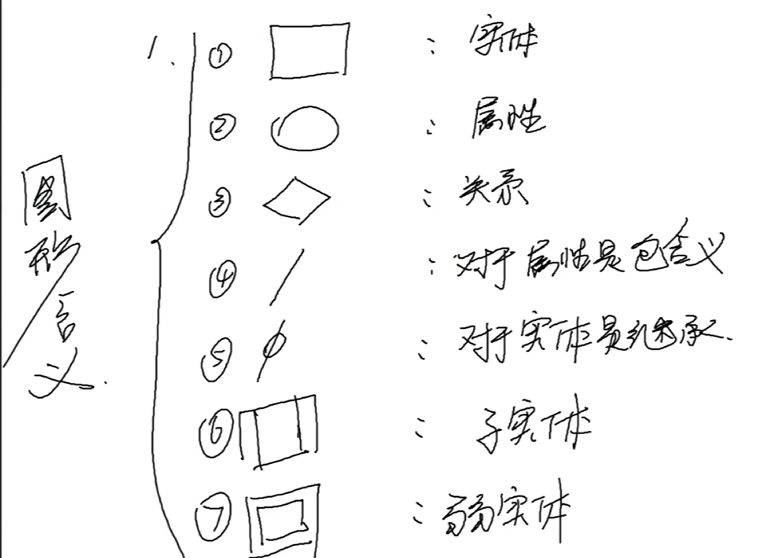 图形含义.
1. ① : 实体
② : 属性
③ : 关系
④ : 对于属性是包含义
⑤ : 对于实体是继承.
⑥ : 子实体
⑦ : 弱实体